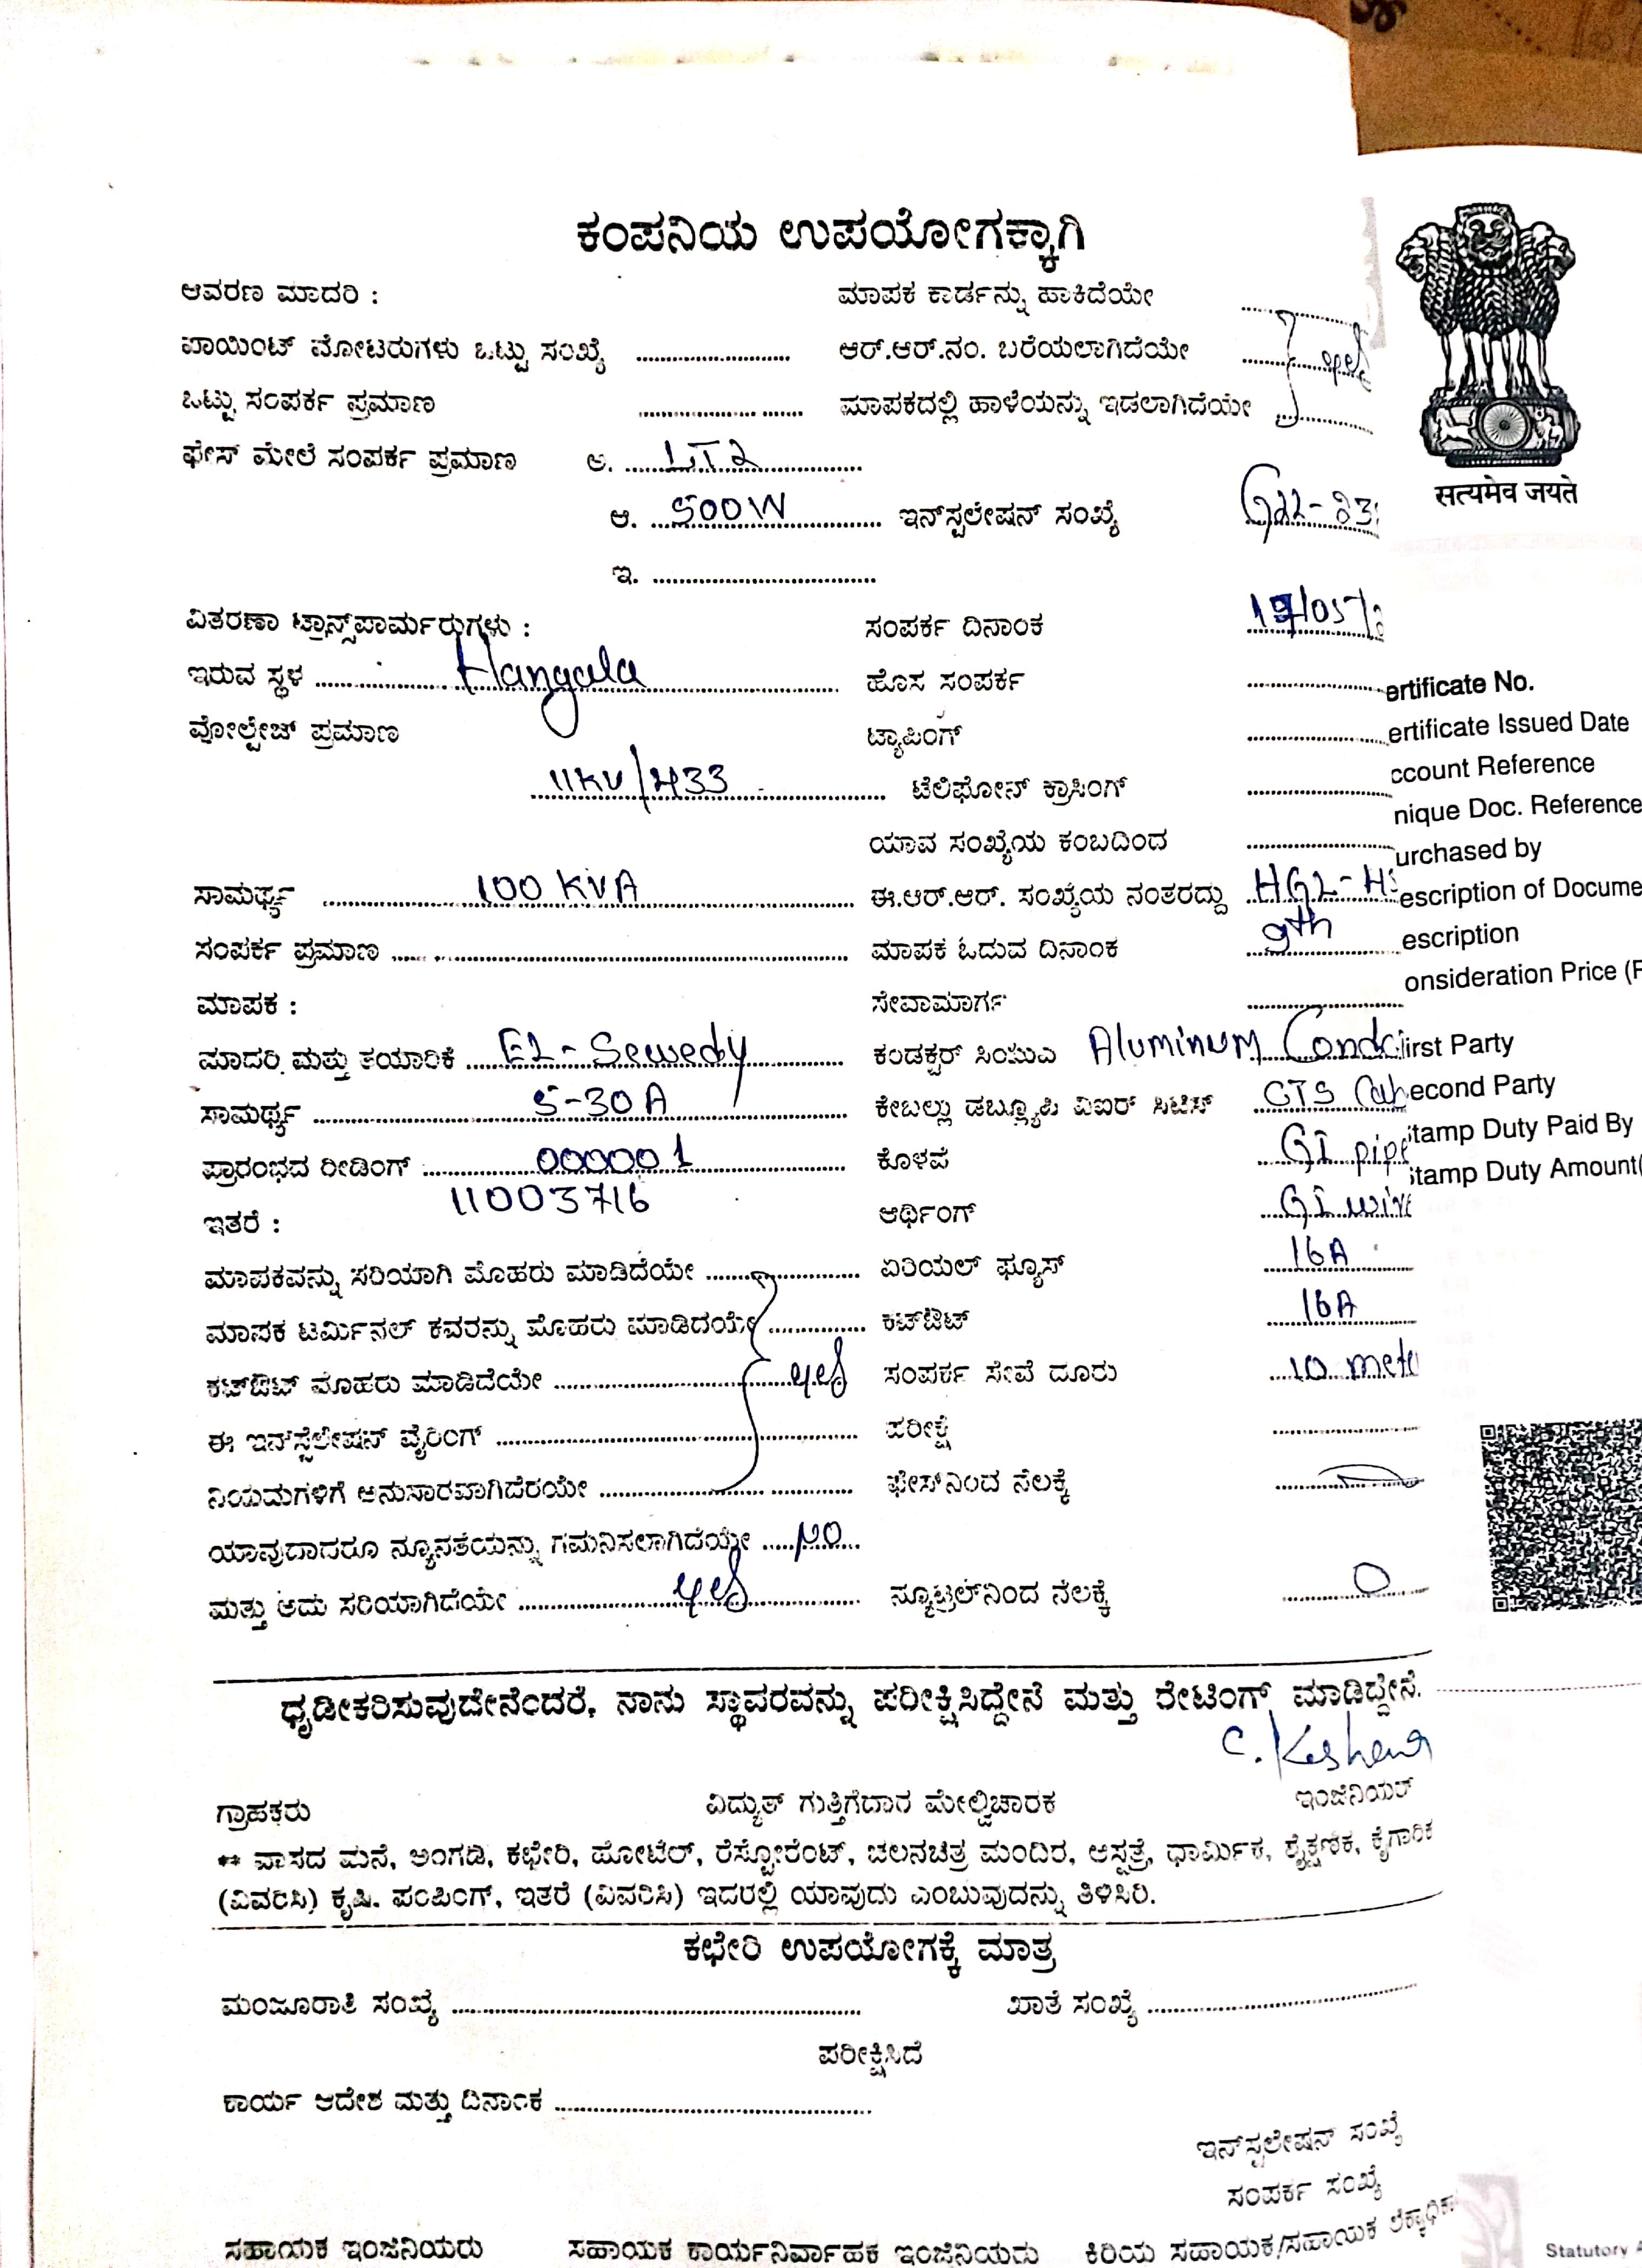 ಕಂಪನಿಯ ಉಪಯೋಗಕ್ಕಾಗಿ
ಆವರಣ ಮಾದರಿ : ಮಾಪಕ ಕಾರ್ಡನ್ನು ಹಾಕಿದೆಯೇ
ಪಾಯಿಂಟ್ ಮೋಟರುಗಳು ಒಟ್ಟು ಸಂಖ್ಯೆ ಆರ್.ಆರ್.ನಂ. ಬರೆಯಲಾಗಿದೆಯೇ yes
ಒಟ್ಟು ಸಂಪರ್ಕ ಪ್ರಮಾಣ ಮಾಪಕದಲ್ಲಿ ಹಾಳೆಯನ್ನು ಇಡಲಾಗಿದೆಯೇ
ಫೇಸ್ ಮೇಲೆ ಸಂಪರ್ಕ ಪ್ರಮಾಣ ಅ. LT2
ಆ. 500W ಇನ್‌ಸ್ಟಲೇಷನ್ ಸಂಖ್ಯೆ
ಇ.
सत्यमेव जयते
ವಿತರಣಾ ಟ್ರಾನ್ಸ್‌ಪಾರ್ಮರುಗಳು : ಸಂಪರ್ಕ ದಿನಾಂಕ 19/05/
ಇರುವ ಸ್ಥಳ Hangala ಹೊಸ ಸಂಪರ್ಕ ertificate No.
ವೋಲ್ಟೇಜ್ ಪ್ರಮಾಣ ಟ್ಯಾಪಿಂಗ್ ertificate Issued Date
11KV/433 ಟೆಲಿಫೋನ್ ಕ್ರಾಸಿಂಗ್ ccount Reference
nique Doc. Reference
ಯಾವ ಸಂಖ್ಯೆಯ ಕಂಬದಿಂದ urchased by
ಸಾಮರ್ಥ್ಯ 100 KVA ಈ.ಆರ್.ಆರ್. ಸಂಖ್ಯೆಯ ನಂತರದ್ದು HGL-H escription of Docume
ಸಂಪರ್ಕ ಪ್ರಮಾಣ ಮಾಪಕ ಓದುವ ದಿನಾಂಕ 9th escription
ಮಾಪಕ : ಸೇವಾಮಾರ್ಗ onsideration Price (R
ಮಾದರಿ ಮತ್ತು ತಯಾರಿಕೆ EL-Sewedy ಕಂಡಕ್ಟರ್ Aluminum Condc irst Party
ಸಾಮರ್ಥ್ಯ 5-30A ಕೇಬಲ್ಲು ಡಬ್ಲ್ಯೂಪಿ ವಿಐರ್ ಸಿಟಿಸ್ econd Party
ಪ್ರಾರಂಭದ ರೀಡಿಂಗ್ 000001 ಕೊಳವೆ GI pipe tamp Duty Paid By
11003716 tamp Duty Amount(
ಇತರೆ : ಆರ್ಥಿಂಗ್ GI wire
ಮಾಪಕವನ್ನು ಸರಿಯಾಗಿ ಮೊಹರು ಮಾಡಿದೆಯೇ ಏರಿಯಲ್ ಫ್ಯೂಸ್ 16A
ಮಾಪಕ ಟರ್ಮಿನಲ್ ಕವರನ್ನು ಮೊಹರು ಮಾಡಿದೆಯೇ ಕಟ್‌ಔಟ್ 16A
ಕಟ್‌ಔಟ್ ಮೊಹರು ಮಾಡಿದೆಯೇ yes ಸಂಪರ್ಕ ಸೇವೆ ದೂರು 10 mete
ಈ ಇನ್‌ಸ್ಟೆಲೇಷನ್ ವೈರಿಂಗ್ ಪರೀಕ್ಷೆ
ನಿಯಮಗಳಿಗೆ ಅನುಸಾರವಾಗಿದೆರಯೇ ಫೇಸ್‌ನಿಂದ ನೆಲಕ್ಕೆ
ಯಾವುದಾದರೂ ನ್ಯೂನತೆಯನ್ನು ಗಮನಿಸಲಾಗಿದೆಯೇ NO
ಮತ್ತು ಅದು ಸರಿಯಾಗಿದೆಯೇ yes ನ್ಯೂಟ್ರಲ್‌ನಿಂದ ನೆಲಕ್ಕೆ 0
ಧೃಡೀಕರಿಸುವುದೇನೆಂದರೆ, ನಾನು ಸ್ಥಾವರವನ್ನು ಪರೀಕ್ಷಿಸಿದ್ದೇನೆ ಮತ್ತು ರೇಟಿಂಗ್ ಮಾಡಿದ್ದೇನೆ.
ಗ್ರಾಹಕರು ವಿದ್ಯುತ್ ಗುತ್ತಿಗೆದಾರ ಮೇಲ್ವಿಚಾರಕ ಇಂಜಿನಿಯರ್
** ವಾಸದ ಮನೆ, ಅಂಗಡಿ, ಕಛೇರಿ, ಹೋಟೆಲ್, ರೆಸ್ಟೋರೆಂಟ್, ಚಲನಚಿತ್ರ ಮಂದಿರ, ಆಸ್ಪತ್ರೆ, ಧಾರ್ಮಿಕ, ಶೈಕ್ಷಣಿಕ, ಕೈಗಾರಿಕ
(ವಿವರಿಸಿ) ಕೃಷಿ. ಪಂಪಿಂಗ್, ಇತರೆ (ವಿವರಿಸಿ) ಇದರಲ್ಲಿ ಯಾವುದು ಎಂಬುವುದನ್ನು ತಿಳಿಸಿರಿ.
ಕಛೇರಿ ಉಪಯೋಗಕ್ಕೆ ಮಾತ್ರ
ಮಂಜೂರಾತಿ ಸಂಖ್ಯೆ ಖಾತೆ ಸಂಖ್ಯೆ
ಪರೀಕ್ಷಿಸಿದೆ
ಕಾರ್ಯ ಆದೇಶ ಮತ್ತು ದಿನಾಂಕ
ಇನ್‌ಸ್ಟಲೇಷನ್ ಸಂಖ್ಯೆ
ಸಂಪರ್ಕ ಸಂಖ್ಯೆ
ಸಹಾಯಕ ಇಂಜಿನಿಯರು ಸಹಾಯಕ ಕಾರ್ಯನಿರ್ವಾಹಕ ಇಂಜಿನಿಯರು ಕಿರಿಯ ಸಹಾಯಕ/ಸಹಾಯಕ
Statutory